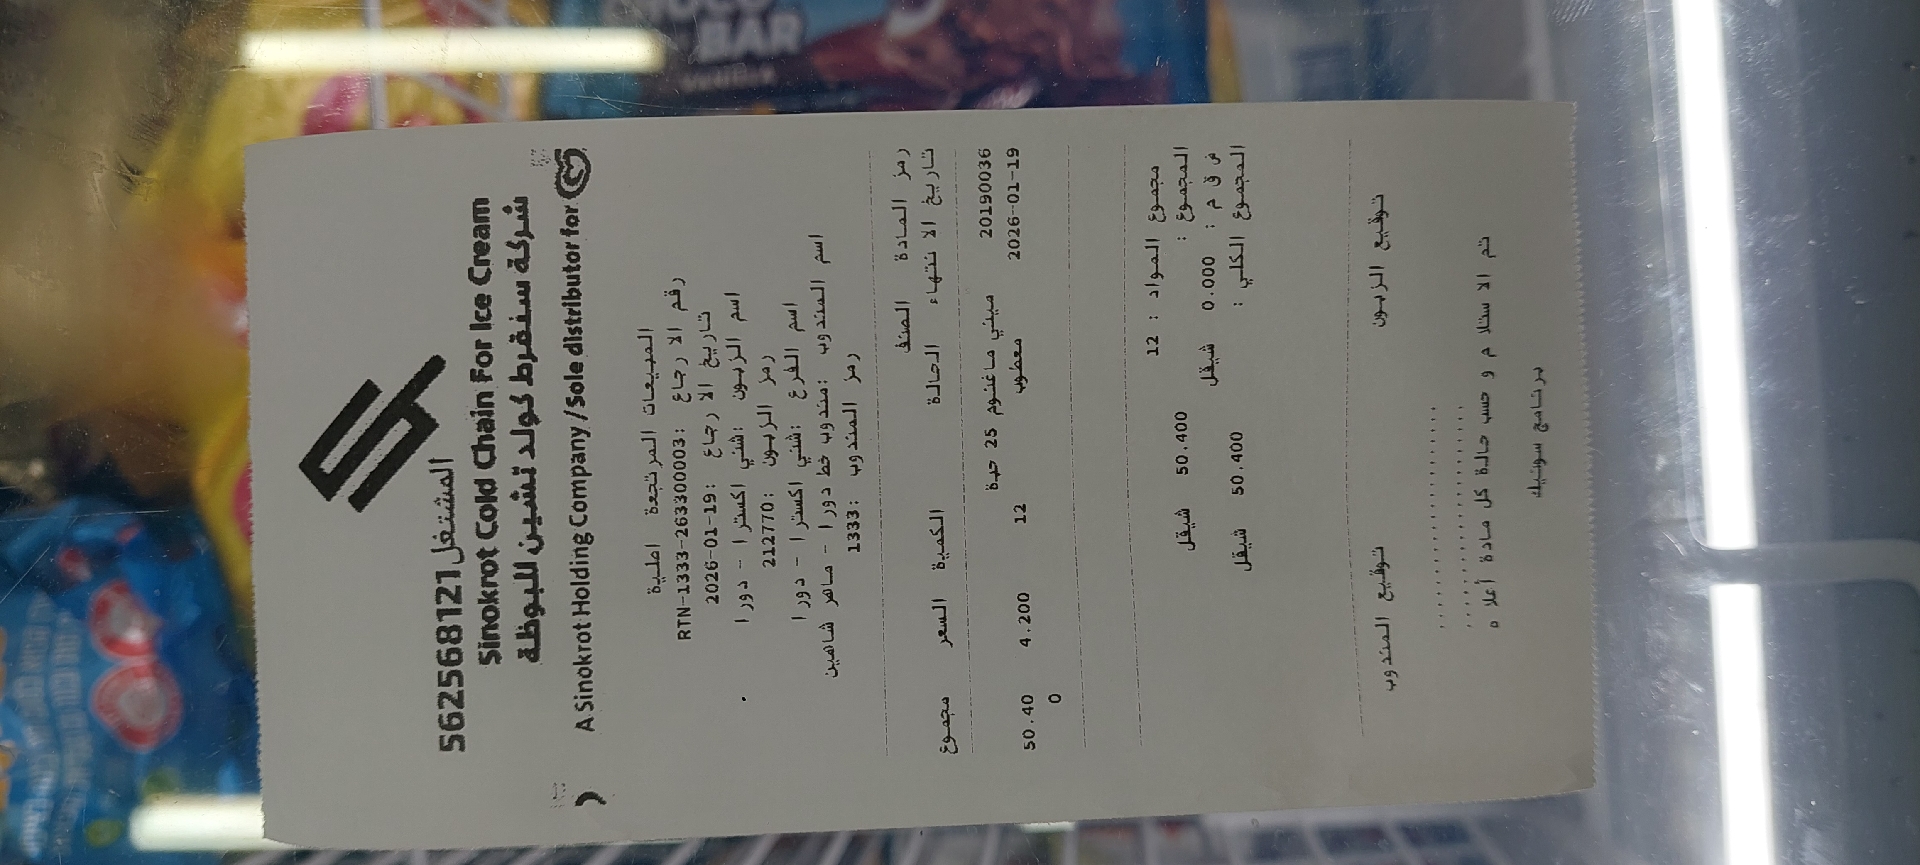 المشتغل562568121
Sinokrot Cold Chain For Ice Cream
شركة سنقرط كولد تشين للبوظة
A Sinokrot Holding Company / Sole distributor for
المبيعات المرتجعة اصلية
رقم الارجاع :RTN-1333-263300003
تاريخ الارجاع :2026-01-19
اسم الزبون :شني اكسترا - دورا
رمز الزبون :212770
اسم الفرع :شني اكسترا - دورا
اسم المندوب :مندوب خط دورا - ماهر شاهين
رمز المندوب :1333
رمز المادة الصنف
تاريخ الانتهاء الحالة الكمية السعر مجموع
20190036 ميني ماغنوم 25 حبة
2026-01-19 معطوب 12 4.200 50.40
0
مجموع المواد : 12
المجموع : 50.400 شيقل
ض ق م : 0.000 شيقل
المجموع الكلي : 50.400 شيقل
توقيع الزبون توقيع المندوب
تم الاستلام و حسب حالة كل مادة أعلاه
برنامج سونيك
CHOCO
BAR
VANILLA